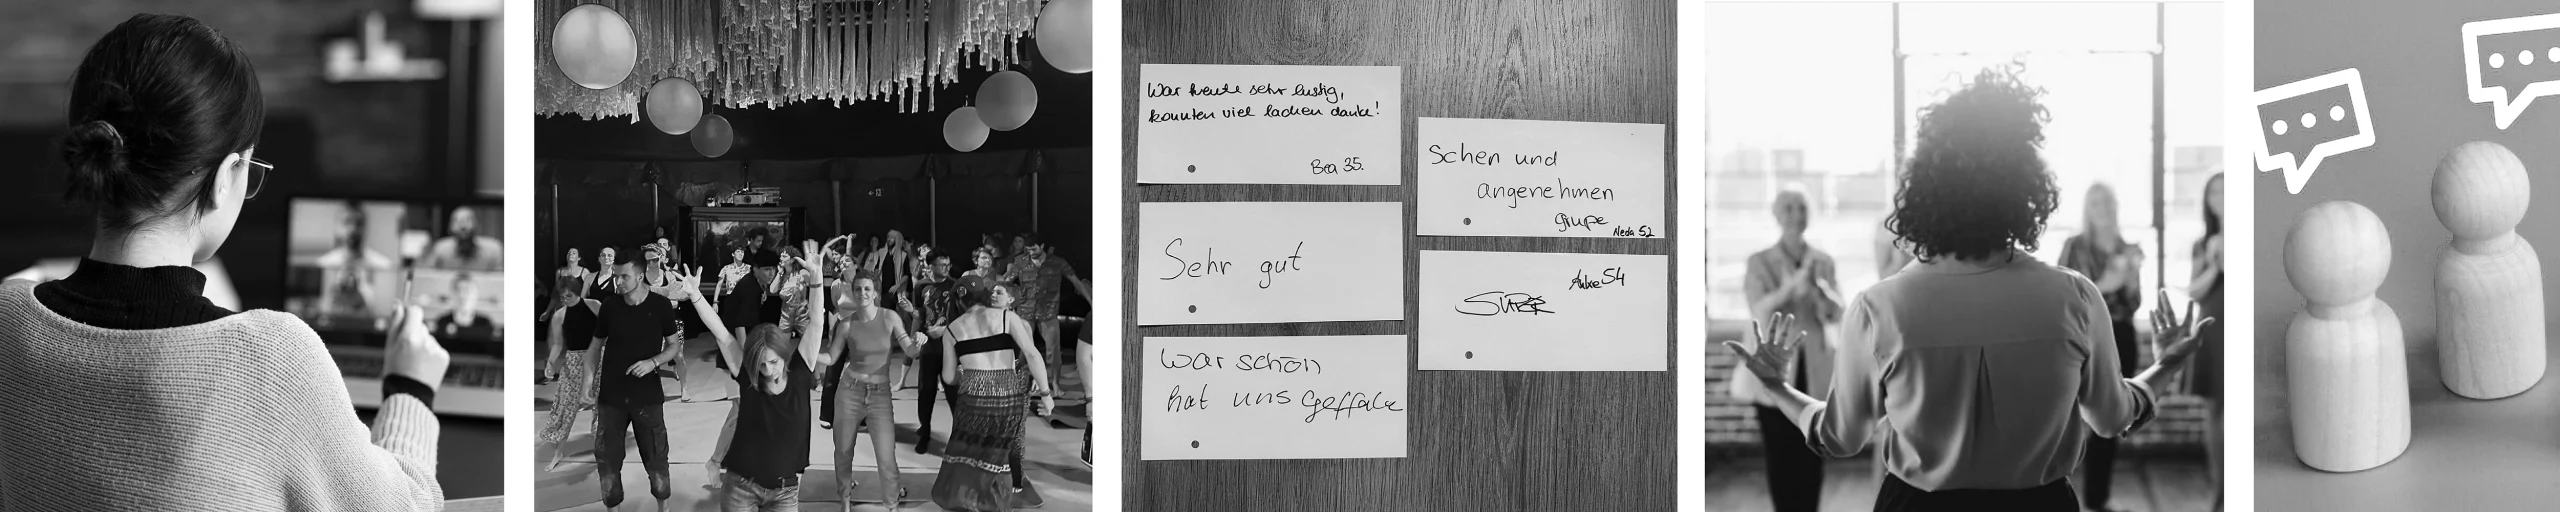 War heute sehr lustig,
konnten viel lachen danke!
Bea 35.
Sehr gut
war schön
hat uns geffale
Schen und
angenehmen
grupe
Neda 52
54